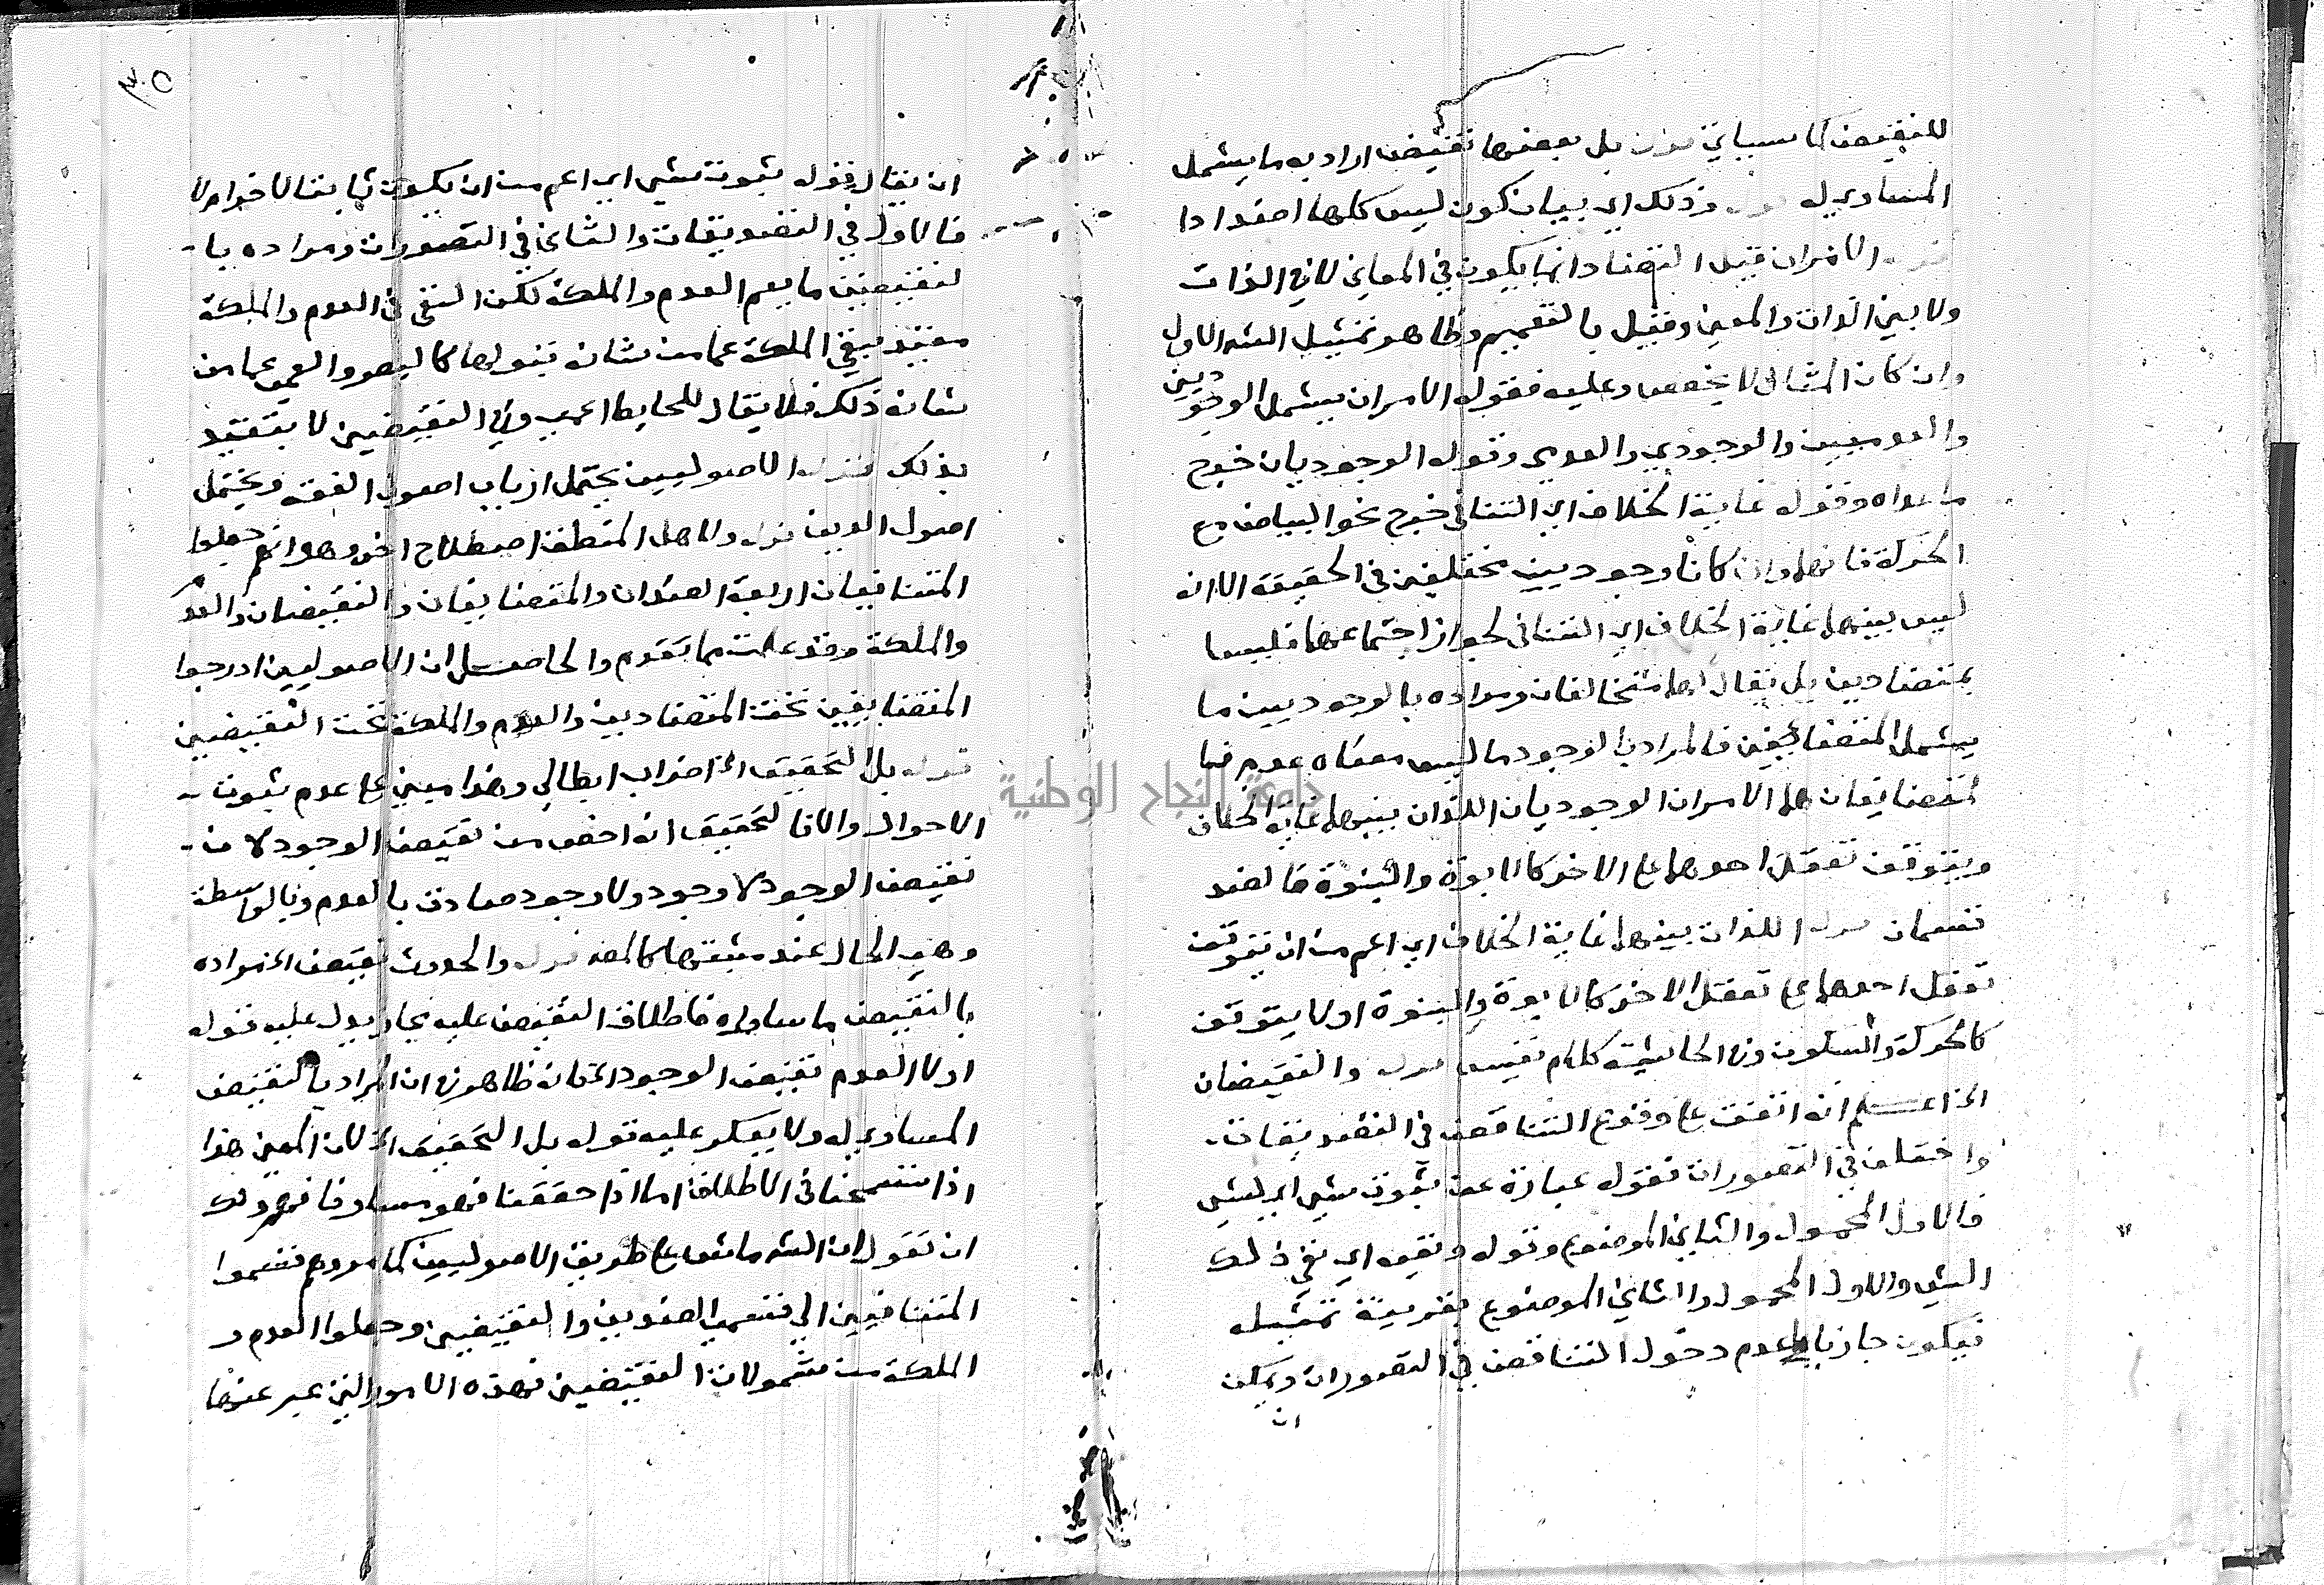 للنقيض كما سيأتي قوله بل بعضها نقيض اراد به ما يشمل
المساوي له قوله وذلك اي بيان كون ليس كلها اضدادا
قوله الامران قيل التضاد انما يكون في المعاني لا في الذات
ولا بين الذات والمعنى وقيل بالتعميم وظاهر تمثيل الشر الاول
وان كان المثال لا يخصص وعليه فقوله الامران يشمل الوجوديين
والعدميين والوجودي والعدمي وقوله الوجوديان خرج
ما عداه وقوله غاية الخلاف اي التنافي خرج نحو البياض مع
الحركة فانهما وان كانا وجوديين مختلفين في الحقيقة الا انه
ليس بينهما غاية الخلاف اي التنافي لجواز اجتماعهما فليسا
بمتضادين بل يقال لهما متخالفان ومراده بالوجوديين ما
يشمل المتضايفين فالمراد بالوجود ما ليس معناه عدم فما
لمتضايفان هما الامران الوجوديان اللذان بينهما غاية الخلاف
ويتوقف تعقل احدهما على الاخر كالابوة والبنوة فالضد
قسمان قوله اللذان بينهما غاية الخلاف اي اعم من ان يتوقف
تعقل احدهما على تعقل الاخر كالابوة والبنوة او لا يتوقف
كالحركة والسكون وفي الحاشية كلام نفيس قوله والنقيضان
الخ اعلم انه اتفقت على وقوع التناقض في التصديقات
واختلف في التصورات فقوله عبارة عن ثبوت شيء اي لشيء
فالاول المحمول والثاني الموضوع وقوله ونفيه اي نفي ذلك
الشيء والاول المحمول والثاني الموضوع بقرينة تمثيله
فيكون جاريا على عدم دخول التناقض في التصورات ويمكن
ان
٣٠٥
ان يقال قوله ثبوت شيء اي اعم من ان يكون ثابتا لاخر ام لا
فالاول في التصديقات والثاني في التصورات ومراده با-
لنقيضين ما يعم العدم والملكة لكن النفي في العدم والملكة
مقيد بنفي الملكة عما من شانه قبولها كالبصر والعمى عما من
شانه ذلك فلا يقال للحايط اعمى وفي النقيضين لا يتقيد
بذلك قوله الاصوليين يحتمل ارباب اصول الفقه ويحتمل
اصول الدين قوله ولاهل المنطق اصطلاح اخر وهو انهم جعلوا
المتنافيان اربعة الضدان والمتضايفان والنقيضان والعدم
والملكة وقد علمت مما تقدم والحاصل ان الاصوليين ادرجوا
المتضايفين تحت المتضادين والعدم والملكة تحت النقيضين
قوله بل التحقيق الخ اضراب ابطالي وهذا مبني على عدم ثبوت
الاحوال والا فالتحقيق انه اخص من نقيض الوجود لان
نقيض الوجود لا وجود ولا وجود صادق بالعدم وبالواسطة
وهي الحال عند مثبتها كالمص قوله والحدوث نقيض الخ مراده
بالنقيض ما ساواه فاطلاق النقيض عليه مجاز يدل عليه قوله
اولا العدم نقيض الوجود الخ فانه ظاهر في ان المراد بالنقيض
المساوي له ولا يعكر عليه قوله بل التحقيق الخ لان المعنى هذا
اذا تسمحنا في الاطلاق اما اذا حققنا فهو مساو فافهم ولك
ان تقول ان الشر ماش على طريق الاصوليين كما مر وهم قسموا
المتنافيين الى قسمين الضدين والنقيضين وجعلوا العدم و
الملكة من مشمولات النقيضين فهذه الامور التي عبر عنها
جامعة النجاح الوطنية